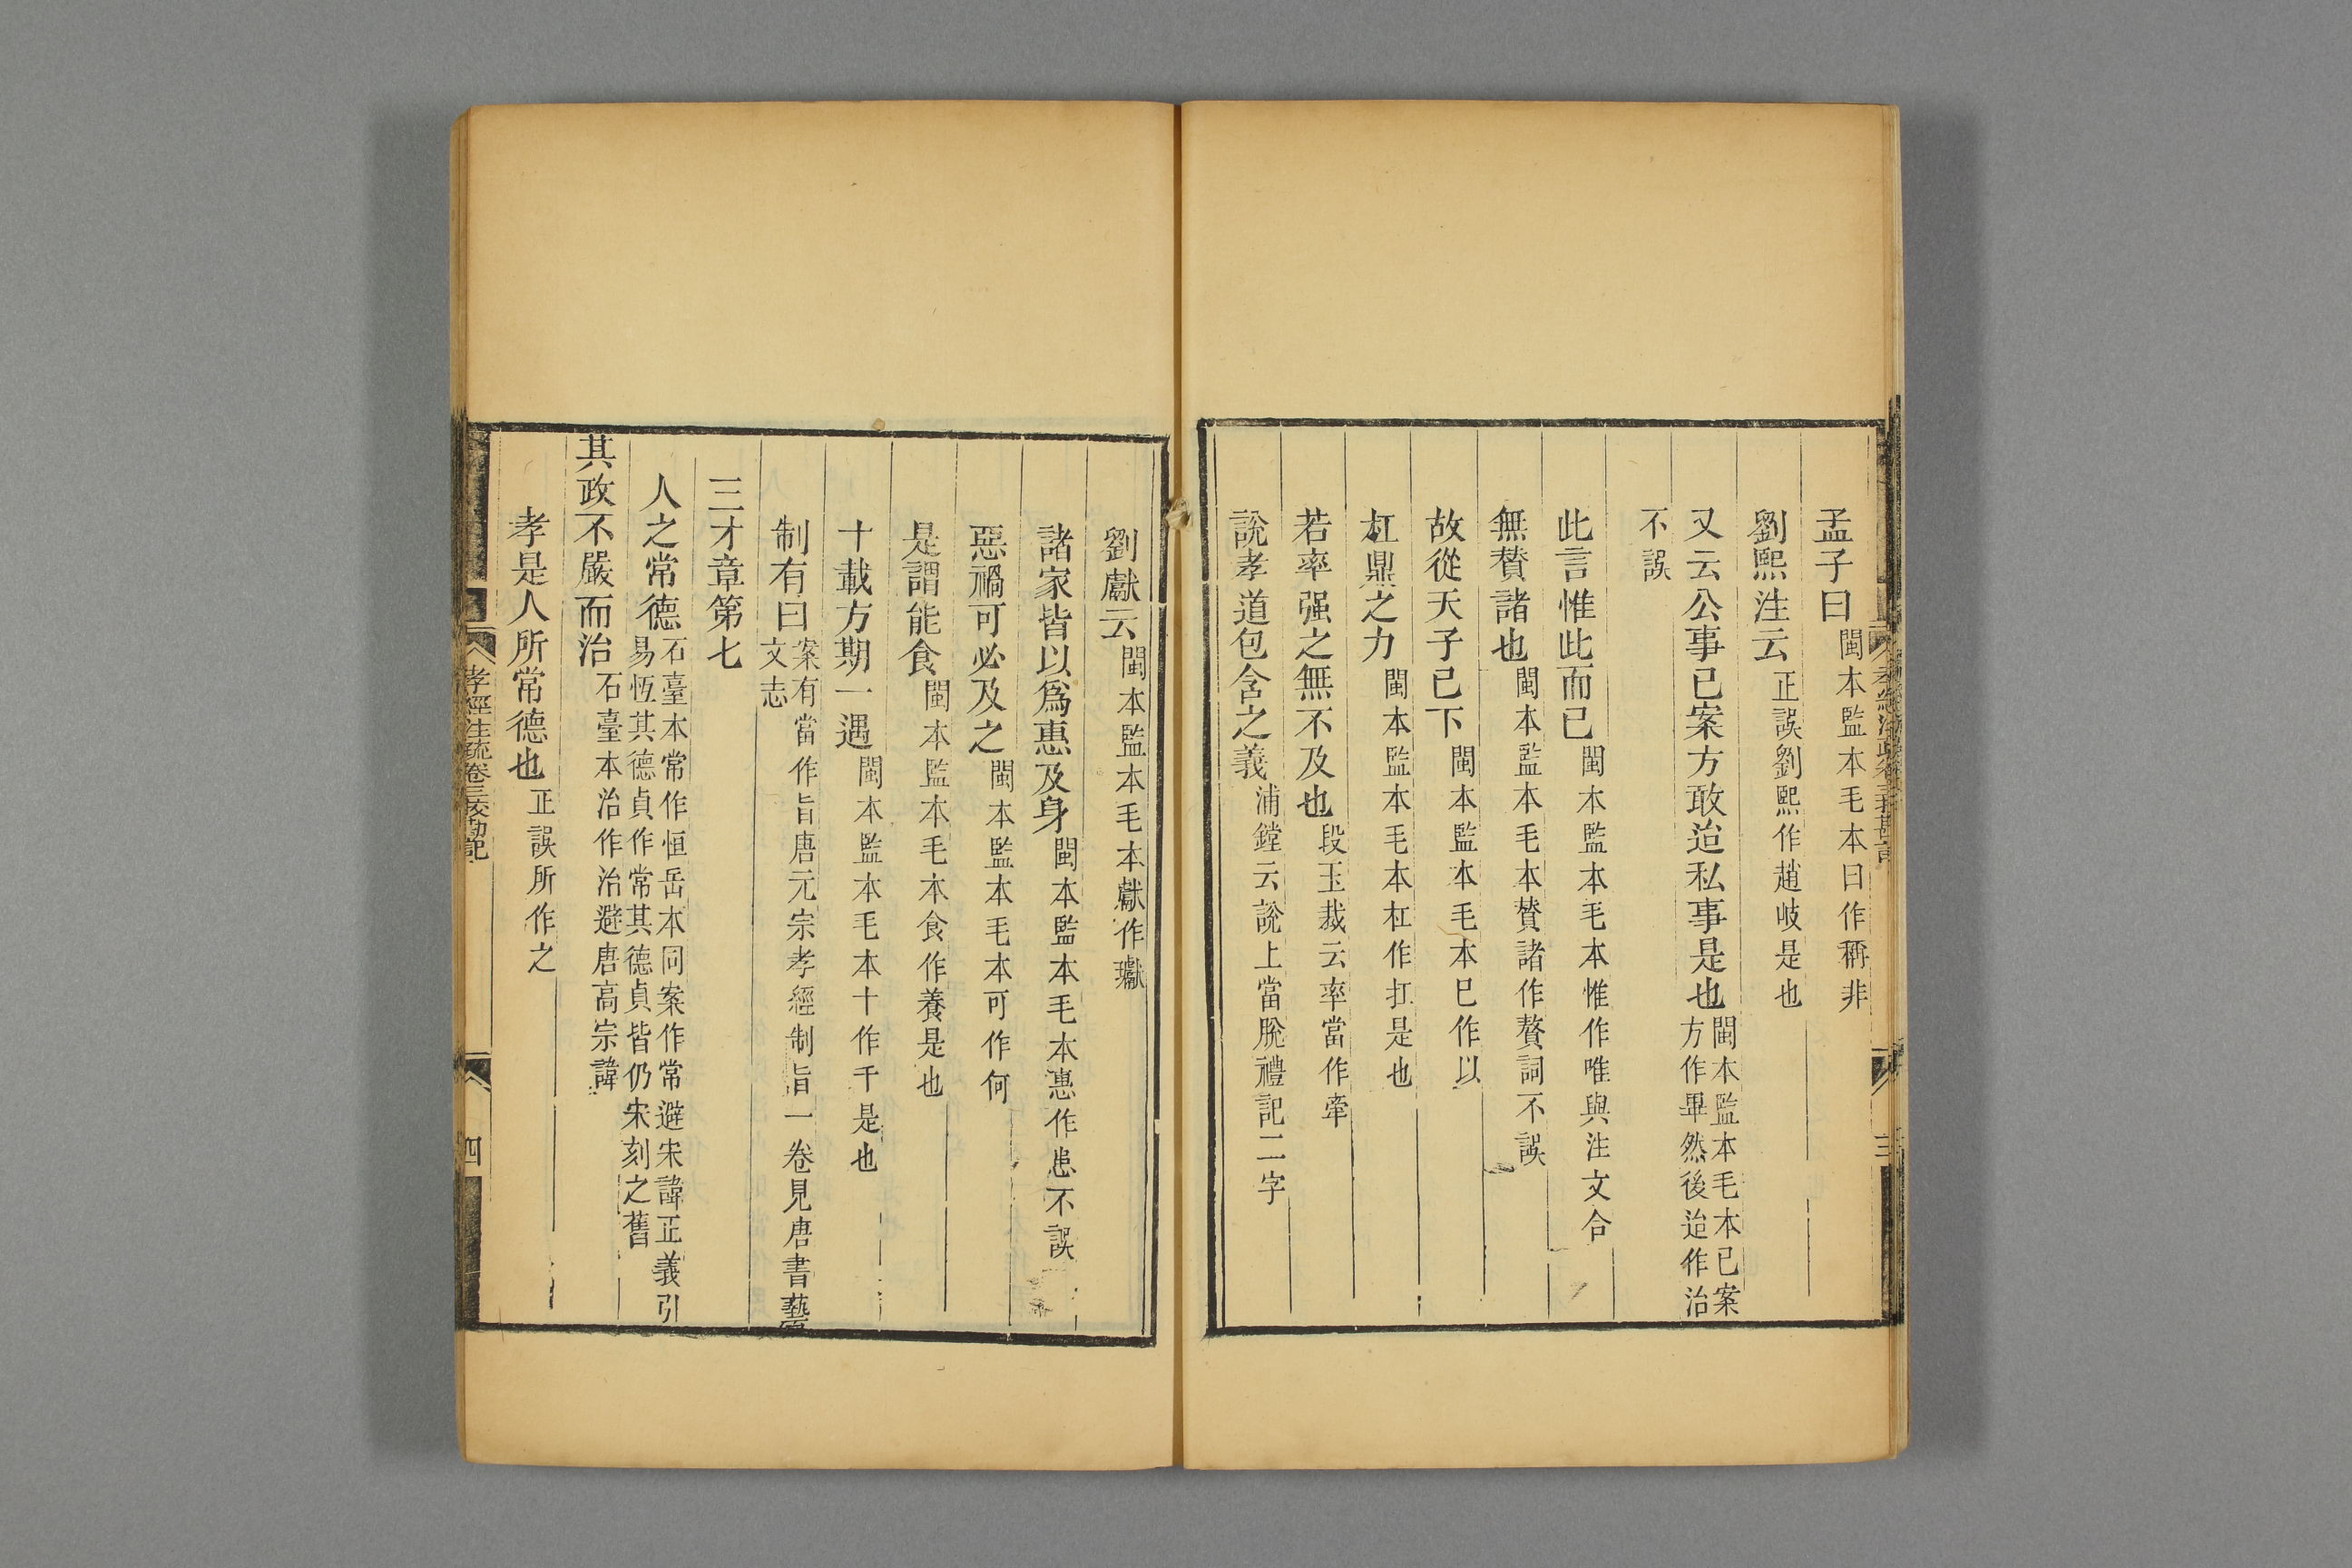 孟子曰閩本監本毛本曰作稱非
劉熙注云正誤劉熙作趙岐是也
又云公事已案方敢迨私事是也閩本監本毛本已案方作畢然後迨作治
不誤
此言惟此而已閩本監本毛本惟作唯與注文合
無贊諸也閩本監本毛本贊諸作贅詞不誤
故從天子已下閩本監本毛本已作以
杠鼎之力閩本監本毛本杠作扛是也
若率强之無不及也段玉裁云率當作牽
說孝道包含之義浦鏜云說上當脫禮記二字
劉獻云閩本監本毛本獻作瓛
諸家皆以爲惠及身閩本監本毛本惠作患不誤
惡禍可必及之閩本監本毛本可作何
是謂能食閩本監本毛本食作養是也
十載方期一遇閩本監本毛本十作千是也
制有曰案有當作旨唐元宗孝經制旨一卷見唐書藝文志
三才章第七
人之常德石臺本常作恒岳本同案作常避宋諱正義引易恆其德貞作常其德貞皆仍宋刻之舊
其政不嚴而治石臺本治作治避唐高宗諱
孝是人所常德也正誤所作之
孝經注疏卷三挍勘記
四